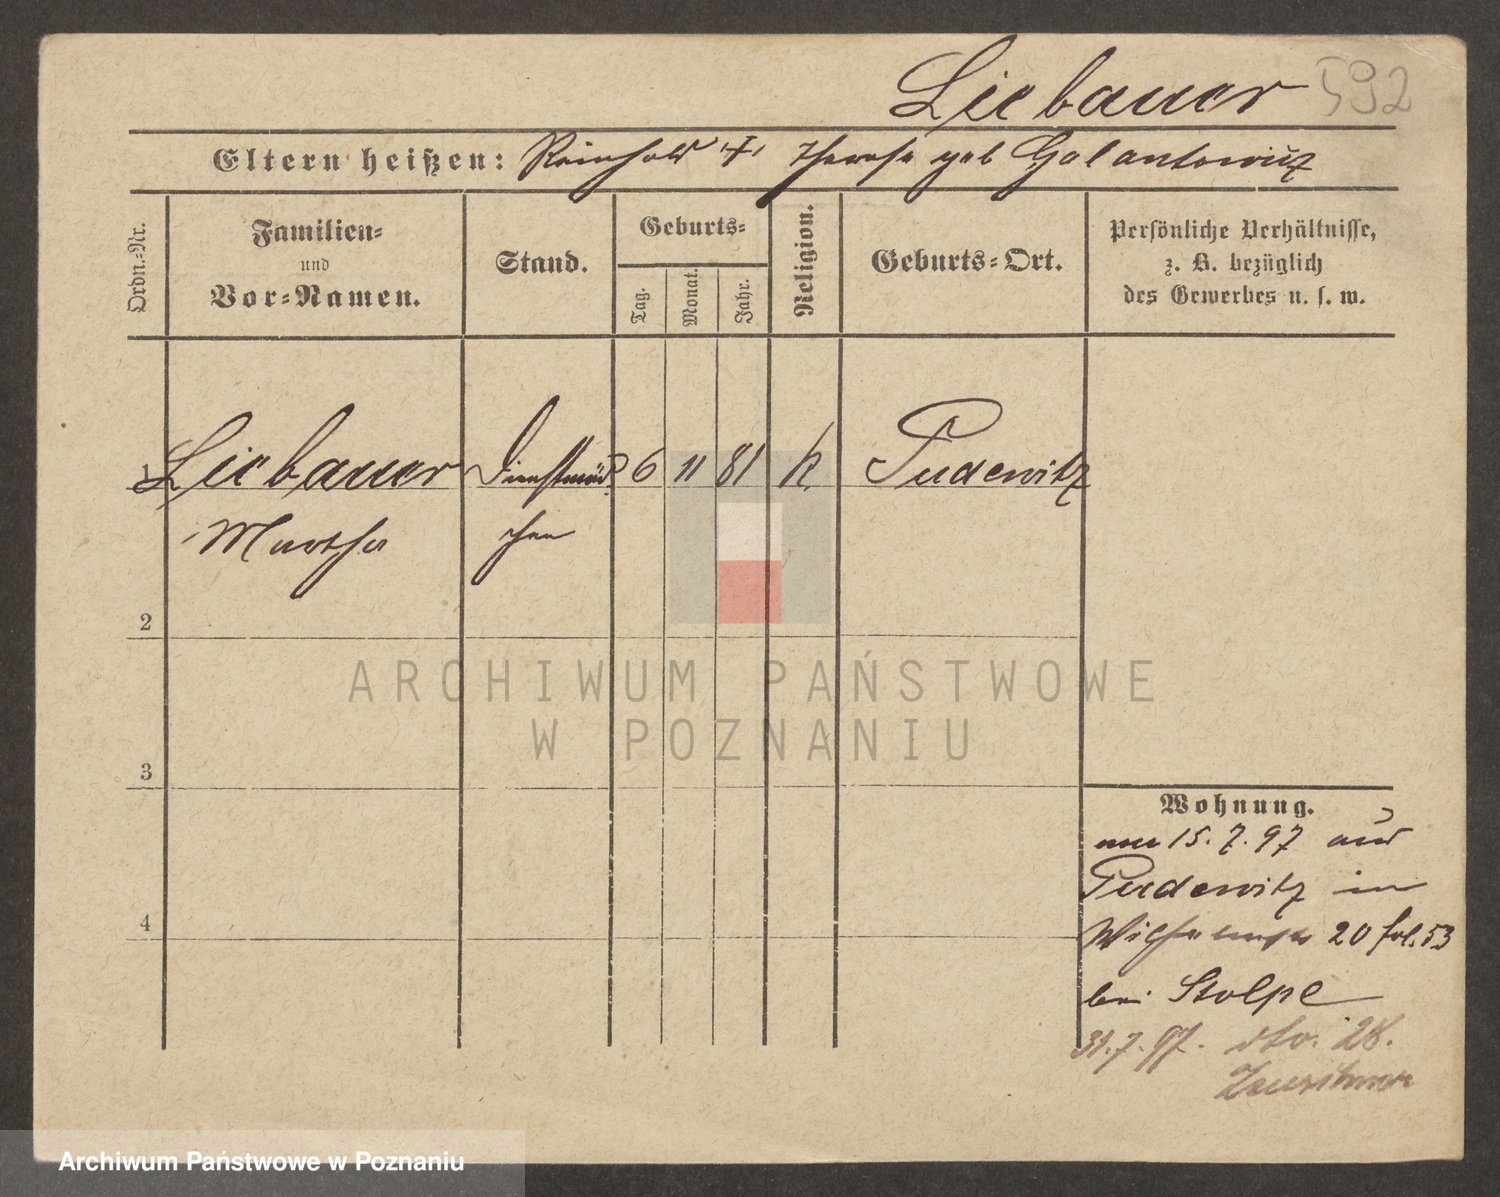 Liebauer 592
Eltern heißen: Reinhold + Therese geb Galantowicz
Ordn.-Nr.
Familien-
und
Vor-Namen.
Stand.
Geburts-
Tag.
Monat.
Jahr.
Religion.
Geburts-Ort.
Persönliche Verhältnisse,
z. B. bezüglich
des Gewerbes u. s. w.
1 Liebauer Dienstmäd 6 11 81 k. Pudewitz
Martha chen
2
3
4
Wohnung.
15. 7. 97 aus
Pudewitz in
20 fol. 53
bei Stolpe
31. 7. 97. dto. 28.
ARCHIWUM PAŃSTWOWE
W POZNANIU
Archiwum Państwowe w Poznaniu